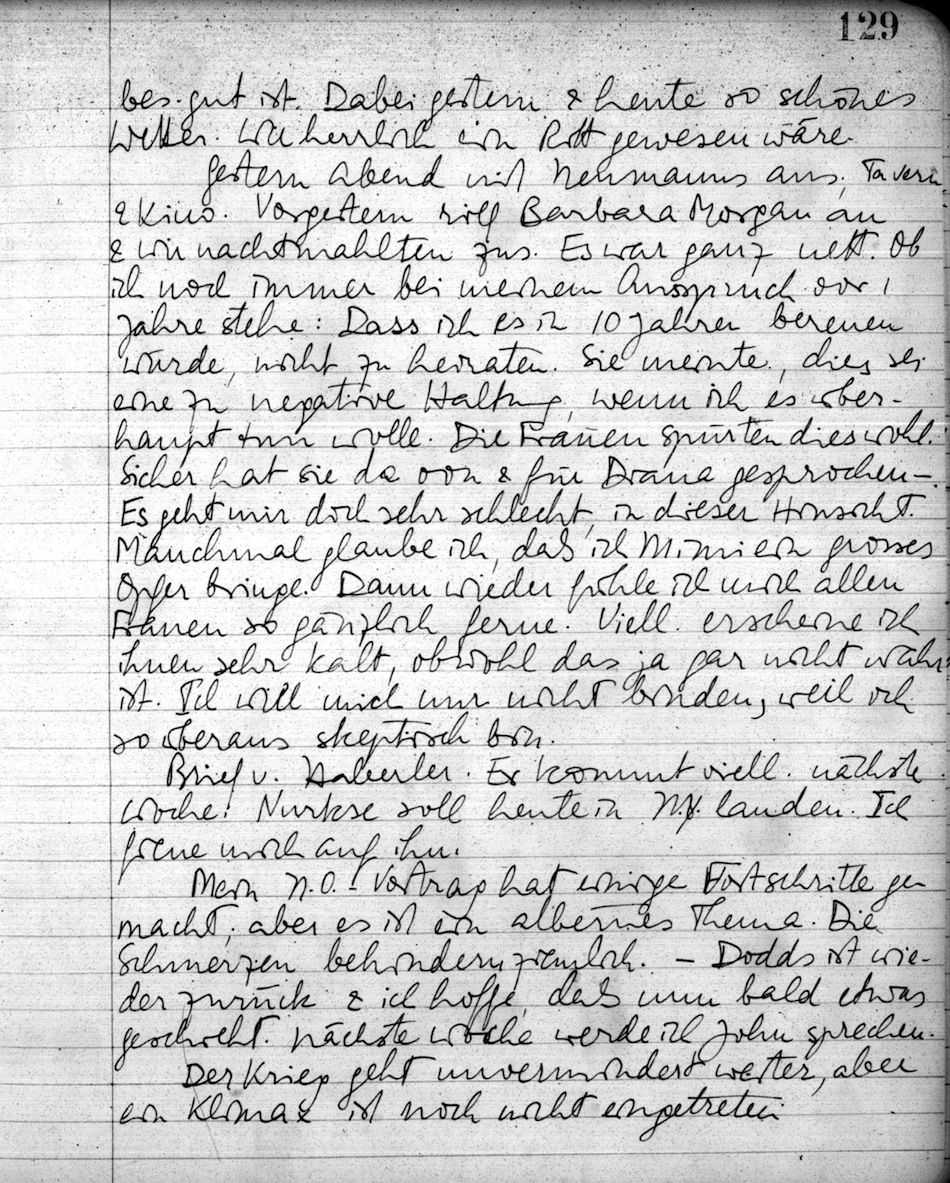 129
bes. gut ist. Dabei gestern & heute so schönes
Wetter. Wie herrlich ein Ritt gewesen wäre.
Gestern Abend mit Neumanns aus, Tavern
& Kino. Vorgestern rief Barbara Morgan an
& wir nachtmahlten zus. Es war ganz nett. Ob
ich noch immer bei meinem Ausspruch vor 1
Jahre stehe: Dass ich es in 10 Jahren bereuen
würde, nicht zu heiraten. Sie meinte, dies sei
eine zu negative Haltung, wenn ich es über-
haupt tun wolle. Die Frauen spürten dies wohl.
Sicher hat sie da von & für Diana gesprochen –.
Es geht mir doch sehr schlecht, in dieser Hinsicht.
Manchmal glaube ich, dass ich Mimi ein grosses
Opfer bringe. Dann wieder fühle ich mich allen
Frauen so gänzlich ferne. Viell. erscheine ich
ihnen sehr kalt, obwohl das ja gar nicht wahr
ist. Ich will mich nur nicht binden, weil ich
so überaus skeptisch bin.
Brief v. Haberler. Er kommt viell. nächste
Woche. Nurkse soll heute in N.Y. landen. Ich
freue mich auf ihn.
Mein N.O. - Vortrag hat einige Fortschritte ge-
macht, aber es ist ein albernes Thema. Die
Schmerzen behindern ziemlich. – Dodds ist wie-
der zurück & ich hoffe, dass nun bald etwas
geschieht. Nächste Woche werde ich John sprechen.
Der Krieg geht unvermindert weiter, aber
ein Klimax ist noch nicht eingetreten